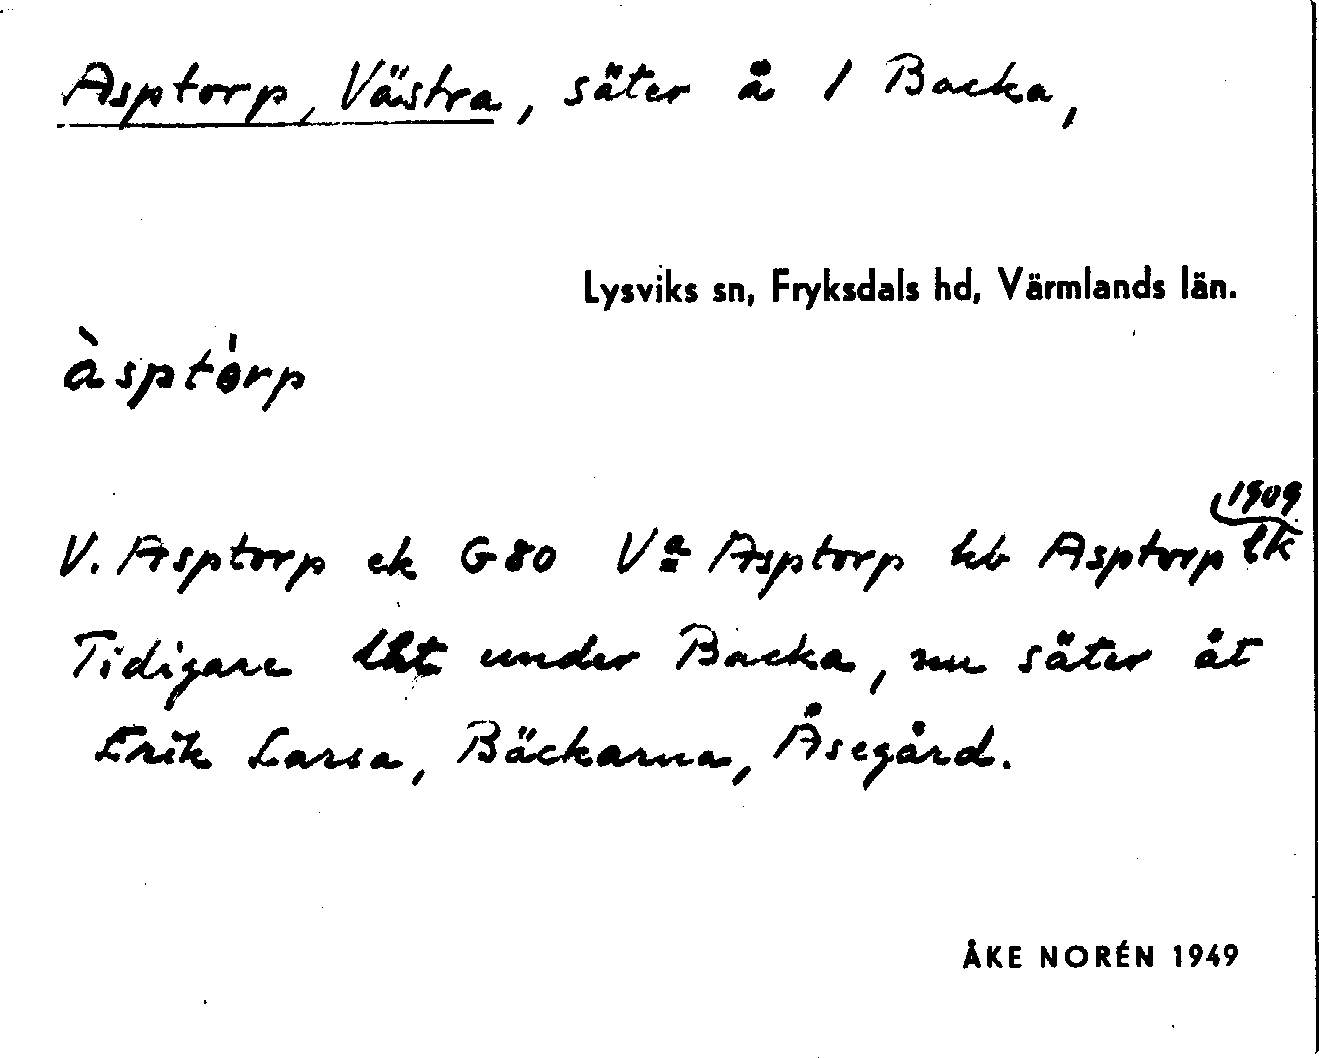 Asptorp, Västra, säter å 1 Backa,
Lysviks sn, Fryksdals hd, Värmlands län.
àsptórp
V. Asptorp ek G80 Va Asptorp kb Asptorp 1909 lk
Tidigare lht under Backa, nu säter åt
Erik Larsa, Bäckarna, Åsegård.
ÅKE NORÉN 1949